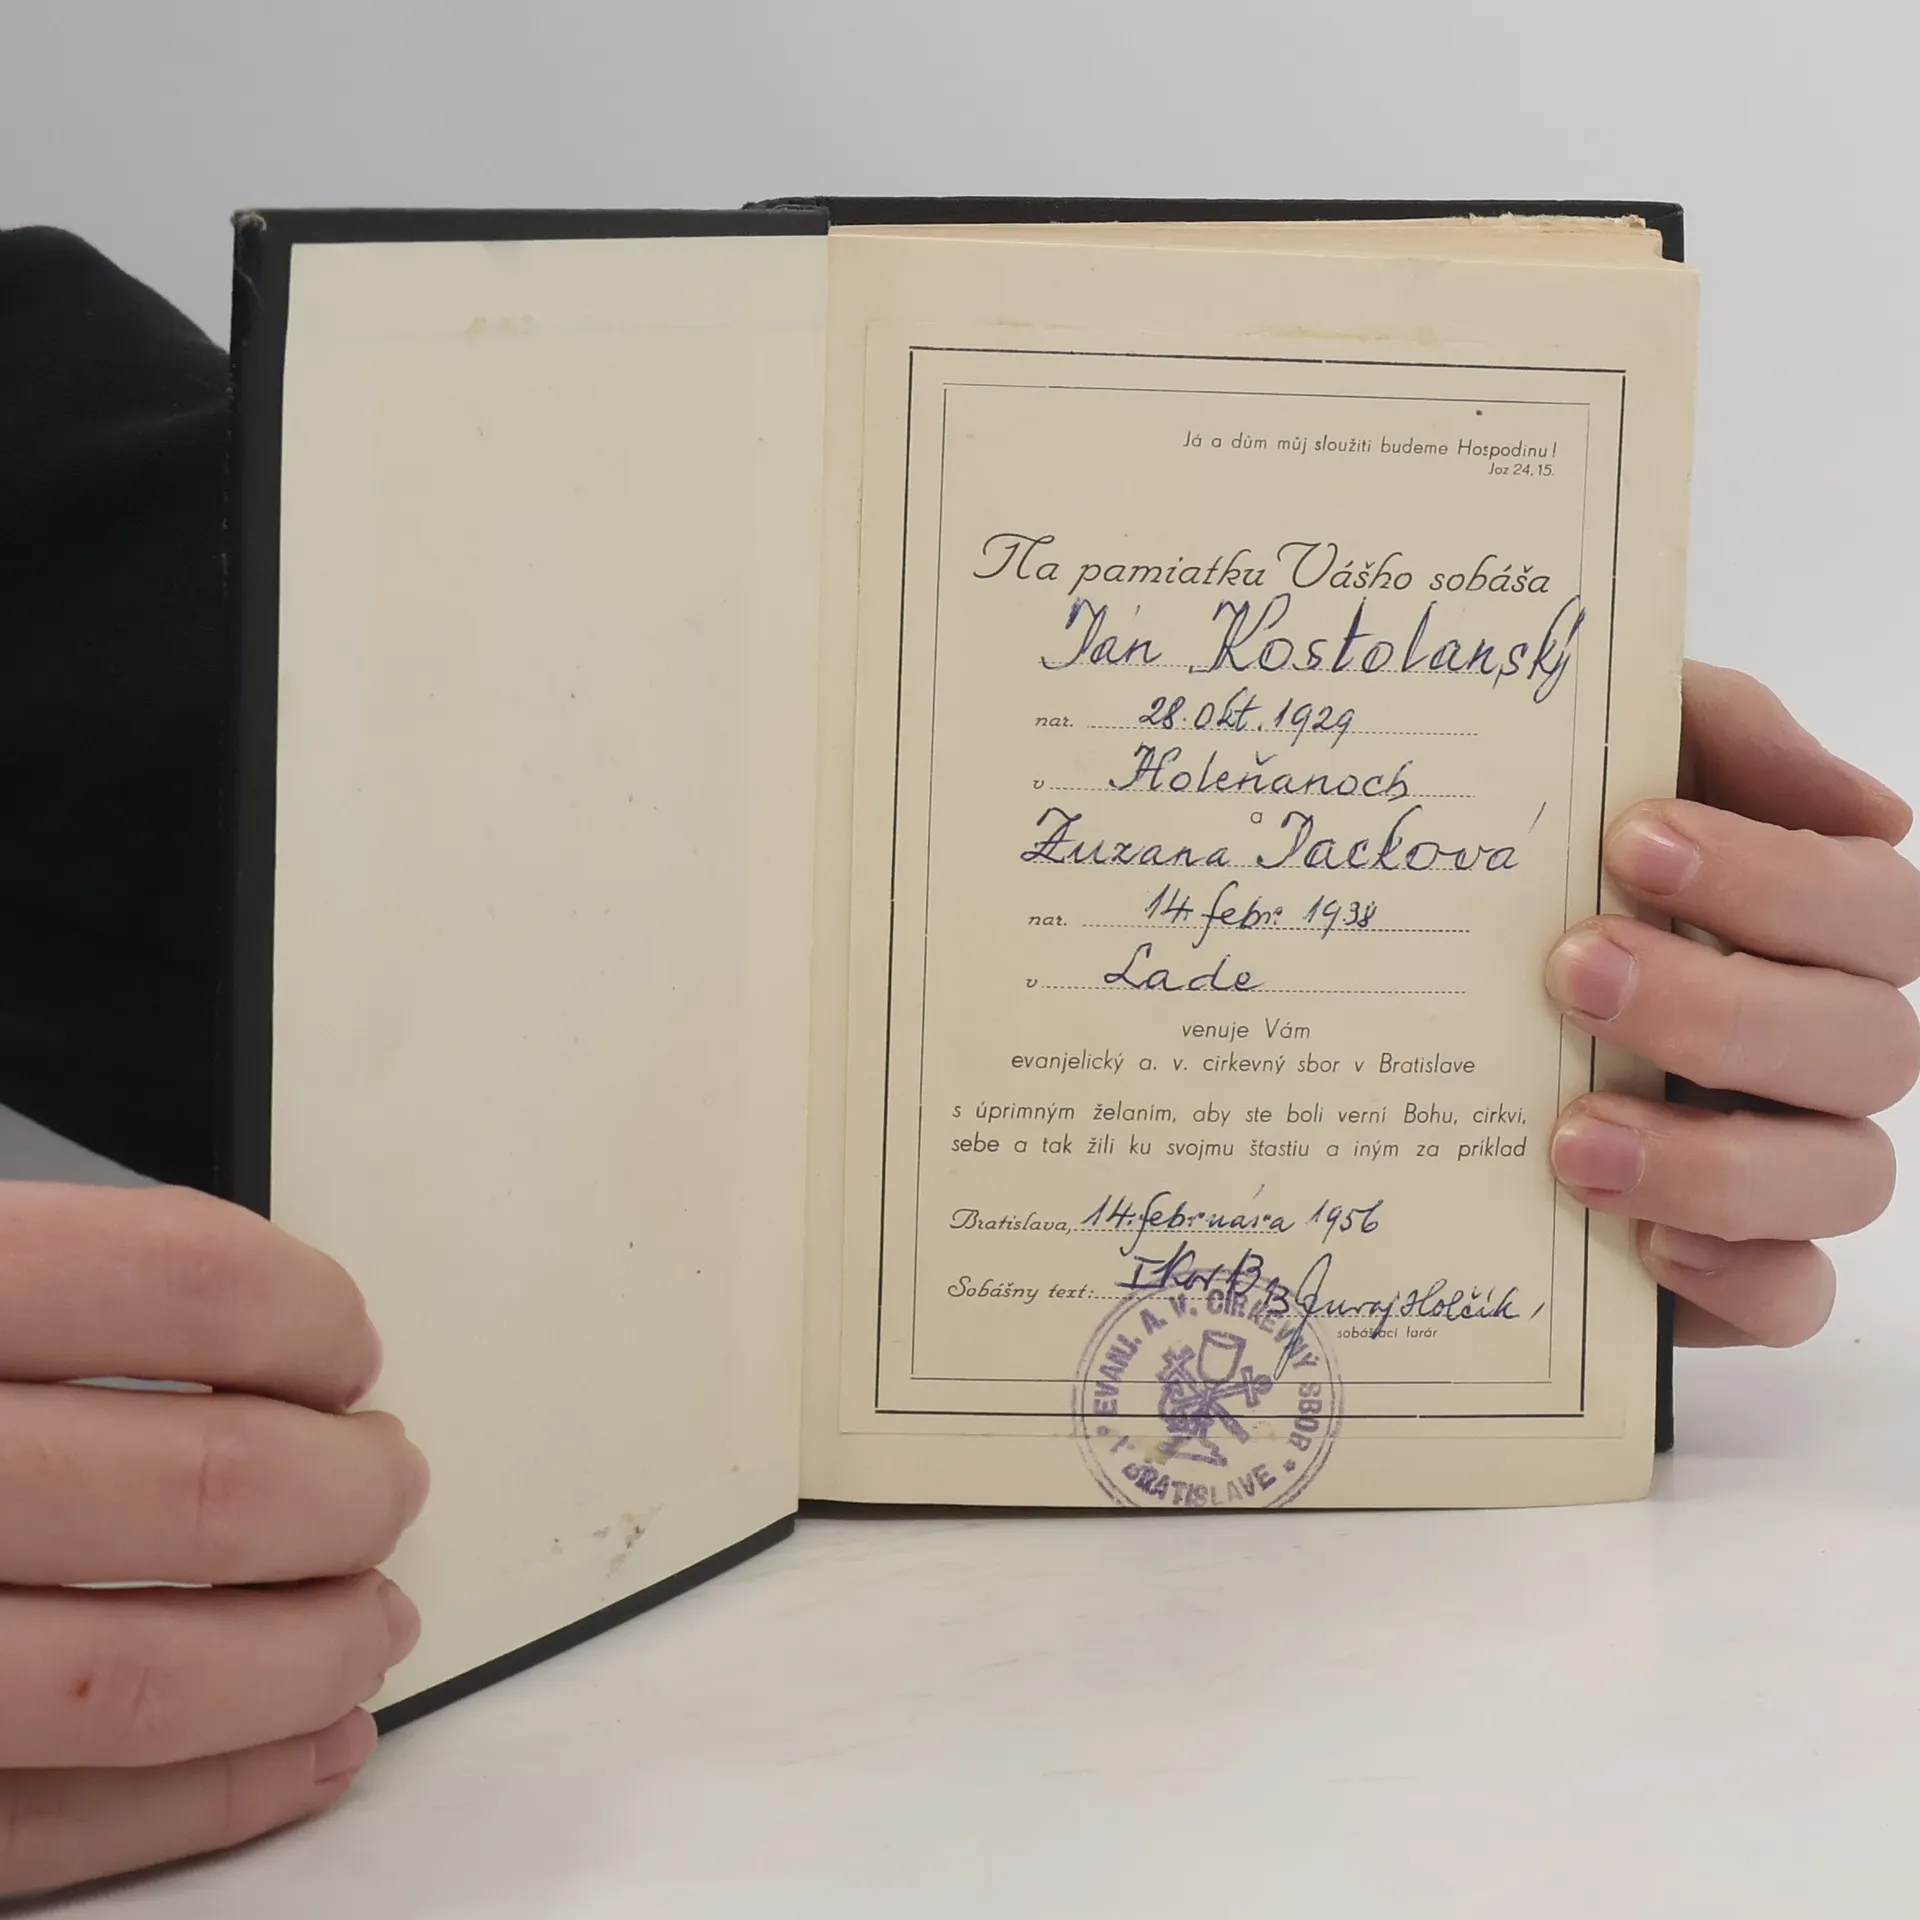 Já a dům můj sloužiti budeme Hospodinu!
Joz 24, 15.
Na pamiatku Vášho sobáša
Ján Kostolanský
nar. 28. Okt. 1929
v Holeňanoch
a
Zuzana Jacková
nar. 14. febr. 1938
v Lade
venuje Vám
evanjelický a. v. cirkevný sbor v Bratislave
s úprimným želaním, aby ste boli verní Bohu, cirkvi,
sebe a tak žili ku svojmu šťastiu a iným za príklad
Bratislava, 14. februára 1956
Sobášny text: I Kor
Juraj Holčík,
sobášiaci farár
EVANJ. A. V. CIRKEVNÝ SBOR
BRATISLAVE